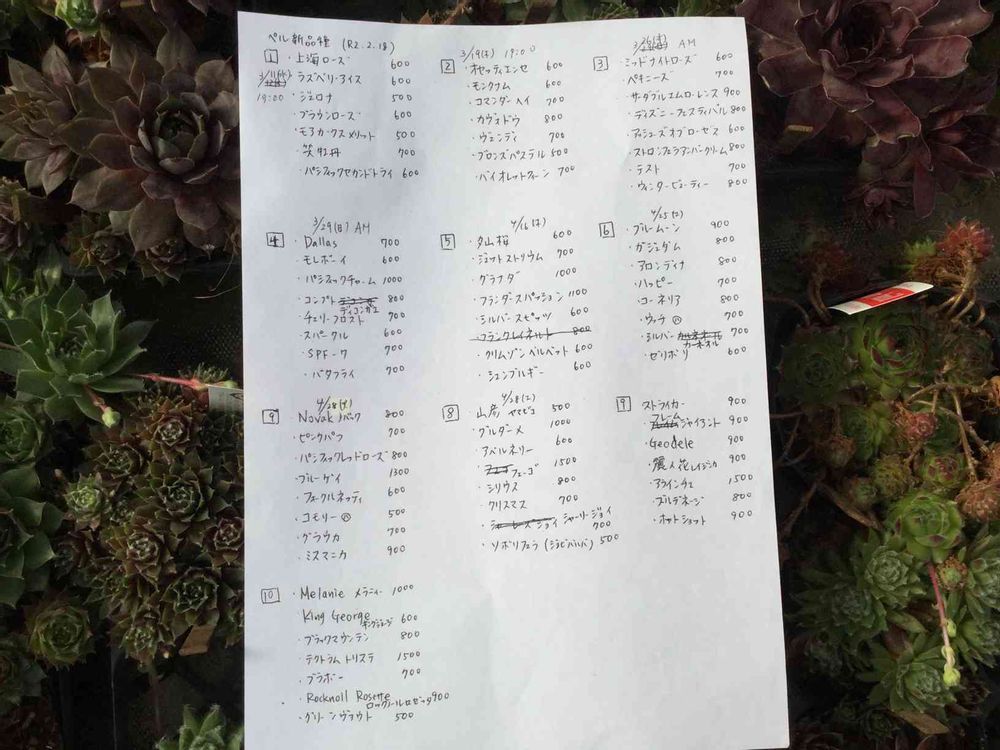 ペル新品種 (R2.2.18)
1 ・上海ローズ 600
3/11(水) ・ラズベリーアイス 600
19:00 ・ジェロナ 500
・ブラウンローズ 600
・モアカークスメリット 500
・笑牡丹 700
・パシフィックセカンドトライ 600
3/19(木) 19:00
2 ・オセッティエンセ 600
・モンクナム 600
・コマンダーヘイ 700
・カヴォドウ 800
・ヴェンディ 700
・ブロンズパステル 500
・バイオレットクィーン 700
3/26(木) AM
3 ・ミッドナイトローズ 600
・ペキニーズ 700
・サーダブルエムローレンス 900
・ディズニーフェスティバル 800
・アシューズオブローゼス 600
・ストロンフェラアンバークリーム 800
・テスト 700
・ウィンタービューティー 800
3/29(日) AM
4 ・Dallas 700
・モレボーイ 600
・パシフィックチャーム 1000
・コンプト 800
ディコンガエ
・チェリーフロスト 700
・スパークル 600
・SPFー7 700
・バタフライ 700
4/16(木)
5 ・夕山桜 600
・ジェットストリウム 700
・グラナダ 1000
・フランダースパッション 1100
・シルバースピッツ 600
・フランクレイネルト 800
・クリムゾンベルベット 600
・シュンブルギー 600
4/25(土)
6 ・ブルームーン 900
・ガジュダム 800
・アロンディナ 800
・ハッピー 700
・コーネリア 800
・ウッチ 700
・シルバー カーネオル 700
・ゼリボリ 600
4/28(火)
9 ・Novak ノバーク 800
・ピンクパフ 700
・パシフィックレッドローズ 800
・ブルーゲイ 1300
・フォークルネッティ 600
・コモリー 500
・グラウカ 700
・ミスマニカ 900
8 ・山彦 ヤマビコ 500
・グルダーメ 1000
・アベルネリー 600
・フェーゴ 1500
・シリウス 800
・クリスマス 700
・シャーリージョイ 700
・ソボリフェラ (ジョビバルバ) 500
9 ストライカー 900
・フレームジャイアント 900
・Geodele 900
・麗人花レイジンカ 900
・アラインチェ 1500
・ズルデネージ 800
・ホットショット 900
10 ・Melanie メラニー 1000
King George キングジョージ 600
・ブラックマウンテン 800
・テクトラムトリステ 1500
・ブラボー 700
・Rocknoll Rosette ロックノールロゼッタ 900
・グリーンヴラウト 500